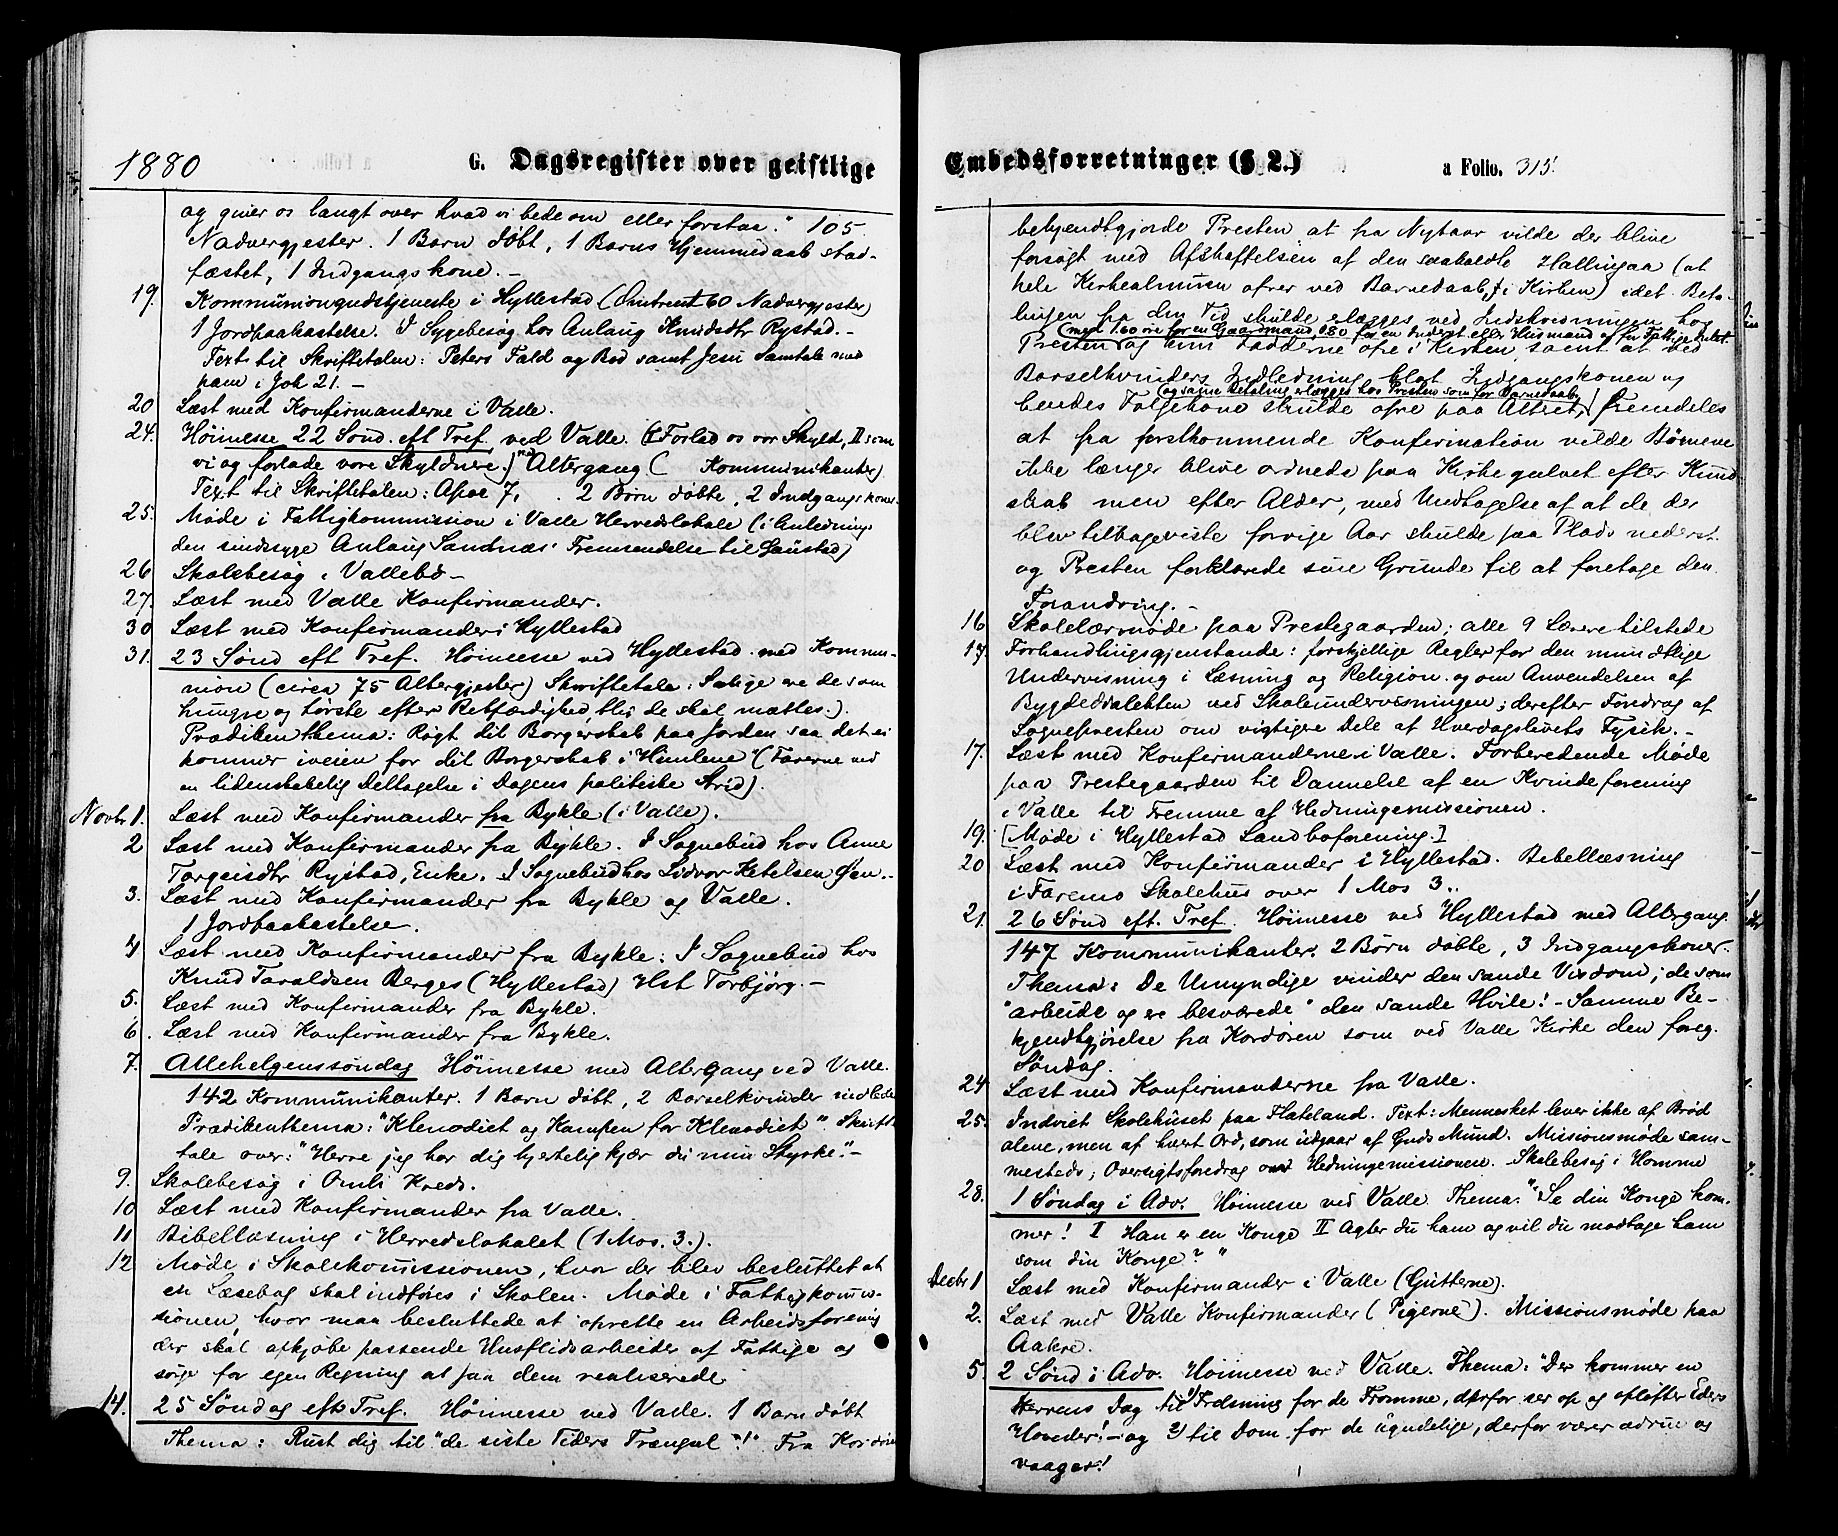 1880
G. Dagsregister over geistlige
og giver os langt over hvad vi bede om eller forstaa." 105
Nadvergjester. 1 Barn døbt, 1 Barns Hjemmedaab stad-
fæstet, 1 Indgangskone. -
19. Kommuniongudstjeneste i Hyllestad (Omtrent 60 Nadvergjester)
1 Jordpaakastelse. I Sygebesøg hos Anlaug Knudsdtr Rystad. -
Text til Skriftetalen: Peters Fald og Bod samt Jesu Samtale med
ham i Joh 21. -
20 Læst med Konfirmanderne i Valle.
24. Høimesse 22 Sønd. eft Tref. ved Valle. (I Forlad os vor Skyld, II som
vi og forlade vore Skyldnere.) Altergang ( Kommunikanter)
Text til Skriftetalen: Apoc 7, . 2 Børn døbte, 2 Indgangskoner
25. Møde i Fattigkommission i Valle Herredslokale (i Anledning
den sindssyge Anlaug Sandnæs' Fremsendelse til Gaustad)
26 Skolebesøg i Vallebø -
27. Læst med Valle Konfirmander.
30 Læst med Konfirmander i Hyllestad
31. 23 Sønd eft Tref. Høimesse ved Hyllestad med Kommu-
nion (circa 75 Altergjester) Skriftetale: Salige ere de som
hungre og tørste efter Retfærdighed, thi de skal mættes.).
Prædikenthema: Røgt dit Borgerskab paa Jorden saa det ei
kommer iveien for dit Borgerskab i Himlene" (Farerne ved
en lidenskabelig Deltagelse i Dagens politiske Strid).
Novbr 1. Læst med Konfirmander fra Bykle (i Valle).
2 Læst med Konfirmander fra Bykle. I Sognebud hos Anne
Torgeisdtr Rystad, Enke. I Sognebud hos Lidvor Ketelsen Øen. -
3. Læst med Konfirmander fra Bykle og Valle.
1 Jordpaakastelse.
4 Læst med Konfirmander fra Bykle. I Sognebud hos
Knud Taraldsen Berges (Hyllestad) Hst Torbjørg. -
5. Læst med Konfirmander fra Bykle.
6. Læst med Konfirmander fra Bykle.
7. Allehelgenssøndag Høimesse med Altergang ved Valle.
142 Kommunikanter. 1 Barn døbt, 2 Barselkvinder indledte
Prædikenthema: "Klenodiet og Kampen for Klenodiet" Skrift
tale over: "Herre jeg har dig hjertelig kjær du min Styrke". -
9. Skolebesøg i Omli Kreds.
10 Læst med Konfirmander fra Valle.
11 Bibellæsning i Herredslokalet (1 Mos. 3.).
12 Møde i Skolekommissionen, hvor der blev besluttet at
en Læsebog skal indføres i Skolen. Møde i Fattigkommis-
sionen, hvor man besluttede at oprette en Arbeidsforening
der skal afkjøbe passende Husflidsarbeider af Fattige og
sørge for egen Regning at faa dem realiserede
14. 25 Søndag eft Tref. Høimesse ved Valle. 1 Barn døbt
Thema: Rust dig til "de siste Tiders Trængsel"! Fra Kordøren
Embedsforretninger (§ 2.)
a Folio. 315.
bekjendtgjorde Presten at fra Nytaar vilde der blive
forsøgt med Afskaffelsen af den saakaldte Hallingaa (at
hele Kirkealmuen ofrer ved Barnedaab i Kirken) idet Beta-
lingen fra den Tid skulde erlægges ved Indskrivningen hos
(med 1.60 øre for en Gaardmand, 0.80 for en Inderst eller Husmand og for Fattige Intet
Presten og kun Fadderne ofre i Kirken samt at ved
Barselkvinders Indledning blot Indgangskonen og
(og samme Betaling erlægges hos Presten som for Barnedaab)
hendes Følgekone skulde ofre paa Altret, fremdeles
at fra førstkommende Konfirmation vilde Børnene
ikke længer blive ordnede paa Kirkegulvet efter Kund
skab men efter Alder, med Undtagelse af at de der
blev tilbageviste forrige Aar skulde faa Plads nederst.
og Presten forklarede sine Grunde til at foretage den
Forandring. -
16 Skolelærermøde paa Prestegaarden; alle 9 Lærere tilstede
17. Forhandlingsgjenstande: forskjellige Regler for den mundtlige
Undervisning i Læsning og Religion og om Anvendelsen af
Bygdedialekten ved Skoleundervisningen; derefter Foredrag af
Sognepresten om vigtigere Dele af Hverdagslivets Fysik. -
17. Læst med Konfirmanderne i Valle. Forberedende Møde
paa Prestegaarden til Dannelse af en Kvindeforening
i Valle til Fremme af Hedningemissionen.
19. [Møde i Hyllestad Landboforening.]
20 Læst med Konfirmander i Hyllestad. Bibellæsning
i Farems Skolehus over 1 Mos 3.
21. 26 Sønd eft. Tref. Høimesse ved Hyllestad med Altergang.
147 Kommunikanter. 2 Børn døbte, 3 Indgangskoner.
Thema: De Umyndige vinder den sande Visdom; de som
"arbeide og ere besværede" den sande Hvile! - Samme Be-
kjendtgjørelse fra Kordøren som ved Valle Kirke den foreg.
Søndag.
24. Læst med Konfirmanderne fra Valle.
25. Indviet Skolehuset paa Flateland. Text: Mennesket lever ikke af Brød
alene, men af hvert Ord, som udgaar af Guds Mund. Missionsmøde sam-
mesteds; Oversigtsforedrag over Hedningemissionen. Skolebesøg i Homme
28. 1 Søndag i Adv. Høimesse ved Valle Thema: "Se din Konge kom-
mer! I Han er en Konge II Agter du ham og vil du modtage ham
som din Konge?"
Decbr 1 Læst med Konfirmander i Valle (Gutterne).
2. Læst med Valle Konfirmander (Pigerne). Missionsmøde paa
Aakre.
5. 2 Sønd i Adv. Høimesse ved Valle. Thema: "Der kommer en
Herrens Dag til 1) Frelsning for de Fromme, derfor ser op og opløfter Eders
Hoveder! - og 2) til Dom for de ugudelige, derfor værer ædrue og
vaager!